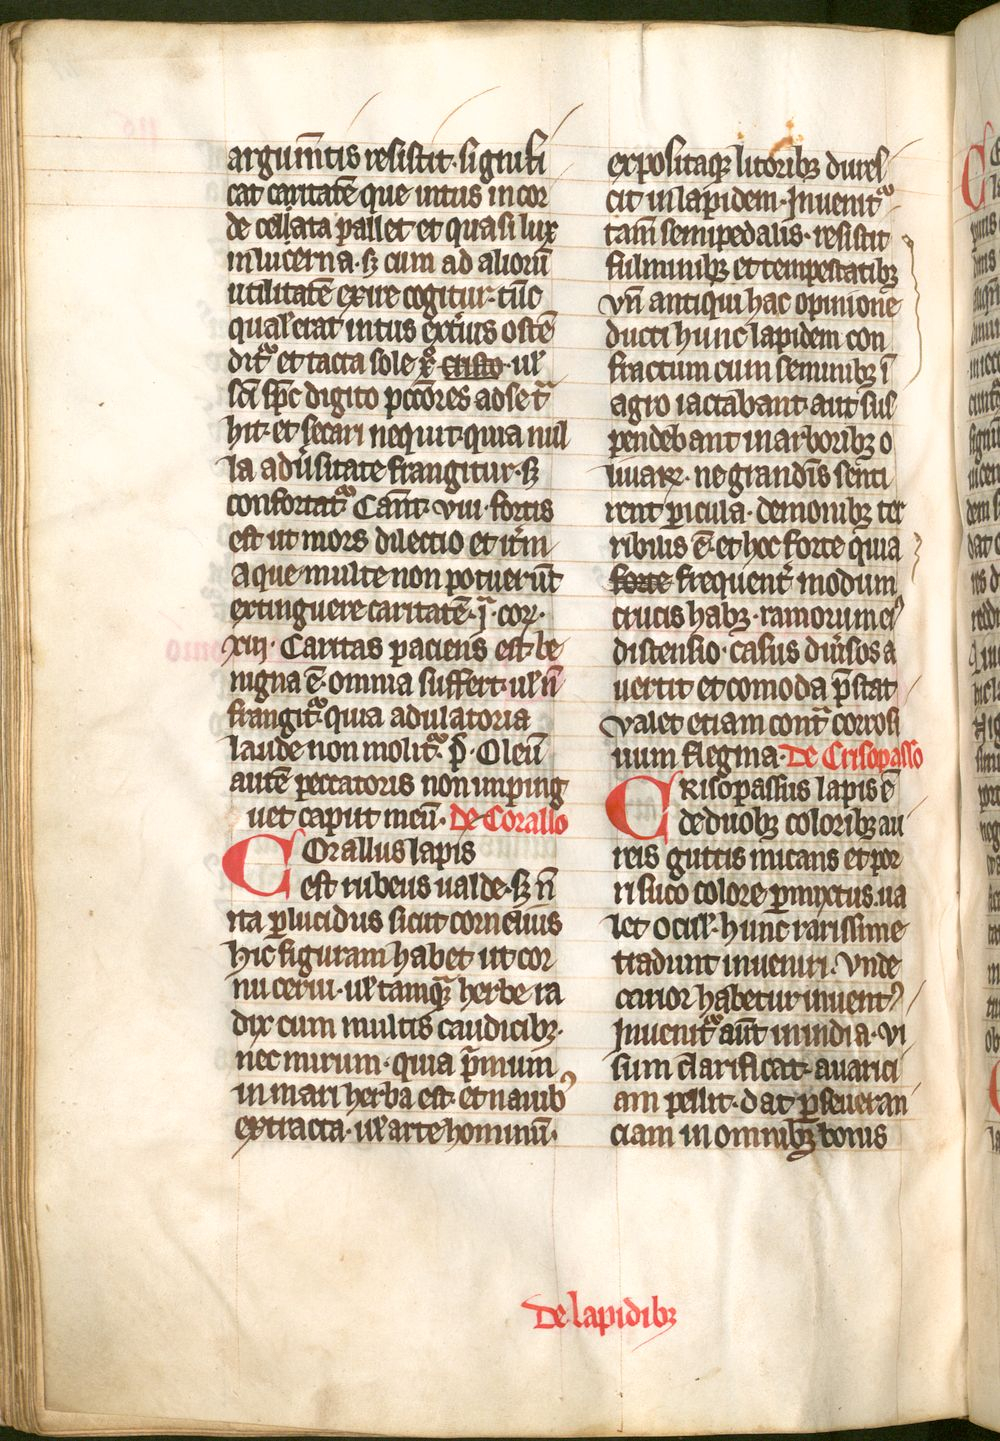 argum̄tis resistit · signifi
cat caritatē que intus in cor
de cellata pallet et quasi lux
in lucerna · sꝫ cum ad aliorū
utilitatē exire cogitur · tūc
qualꝭ erat intus ext̾ius ostē
dit᷑ et tacta sole xp̄o cristo · ul̓
sc̄i sp̄c digito pctōres ad se t̾
hit · et secari nequit · quia nul
la adu̾sitate frangitur · sꝫ
confortat᷑ Cant̄ · viii · fortis
est ut mors dilectio et it̾m
aque multe non potuerūt
extinguere caritatē · j̾ · coꝝ ·
xiij · Caritas paciens est · be
nigna ē · omnia suffert · ul̓ n̄
frangit᷑ quia adulatoria
laude non molit᷑ · p̄s · Oleū
autē peccatoris non imping
uet caput meū · de Corallo
Corallus lapis
est rubeus ualde · sꝫ n̄
ita ꝑlucidus sicut cornelius
Hic figuram habet ut cor
nu cerui · ul̓ tamqᷓ herbe ra
dix cum multis caudicibꝫ ·
nec mirum · quia pͥmum
in mari herba est · et nauibꝰ
extracta · ul̓ arte hominū ·
expositaqꝫ litoribꝫ dures
cit in lapidem · Inuenit᷑
tam̄ semipedalis · resistit
fulminibꝫ et tempestatibꝫ
vn̄ antiqui hac opinione
ducti hunc lapidem con
fractum cum seminibꝫ ī
agro iactabant · aut sus
pendebant in arboribꝫ o
liuaꝝ · ne grandīs senti
rent ꝑicula · demonibꝫ ter
ribilis ē · et hoc forte quia
forte frequent̾ modum
crucis habꝫ · ramorum eiꝰ
distensio · casus diu̾sos a
uertit et comoda p̄stat
valet etiam cont̾ corrosi
uum flegma · De Crisopasso
Crisopassus lapis ē
de duobꝫ coloribꝫ au
reis guttis micans et por
ri suco colore ꝑmixtus · ua
let oculꝭ · hunc rarissime
tradunt inueniri · Vnde
carior habetur inuentꝰ
Inuenit᷑ aūt in india · vi
sum clarificat · auarici
am pellit · dat ꝑseueran
ciam in omnibꝫ bonis
De lapidibꝫ